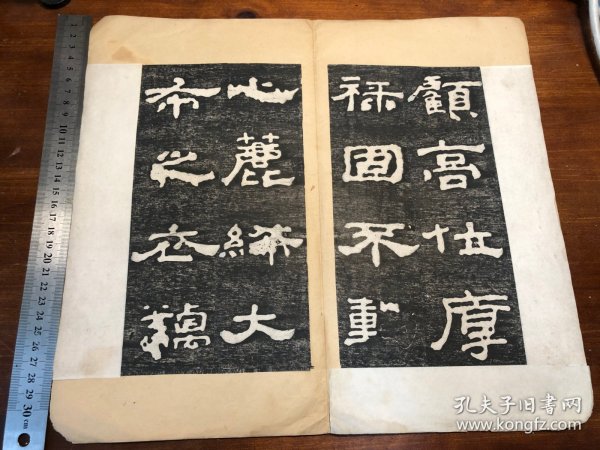 顧高位厚
禄固不動
心麤絺大
布之衣糲
1 2 3 4 5 6 7 8 9 10 11 12 13 14 15 16 17 18 19 20 21 22 23 24 25 26 27 28 29 30 cm
孔夫子旧书网
www.kongfz.com